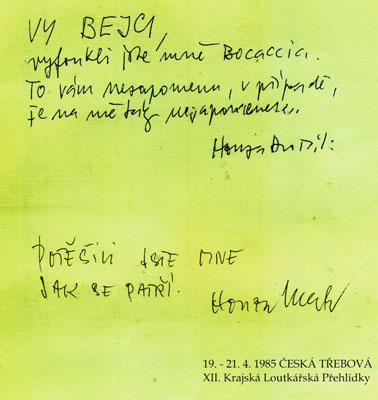 VY BEJCI,
vyfoukli jste mně Bocaccia.
To vám nezapomenu, v případě,
že na mě taky nezapomenete.
Honza
POTĚŠILI JSTE MNE
JAK SE PATŘÍ.
Honza
19. - 21. 4. 1985 ČESKÁ TŘEBOVÁ
XII. Krajská Loutkářská Přehlídky